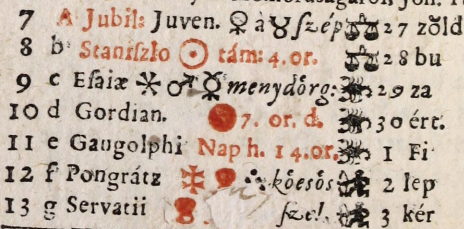 7 A Jubil: Juven. ♀ à ♉ ſzép ♎♎ 27 zőld
8 b Staniſzlo ☉ tám: 4. or. ♎♎ 28 bu
9 c Eſaiæ ✶ ♂ ☿ menydőrg: ♏ 29 za
10 d Gordian. 7. or. d. ♏ 30 ért.
11 e Gangolphi Nap h. 14. or. ♏ 1 Fi
12 f Pongrátz kőesős 2 lep
13 g Servatii ſzel. 3 kér